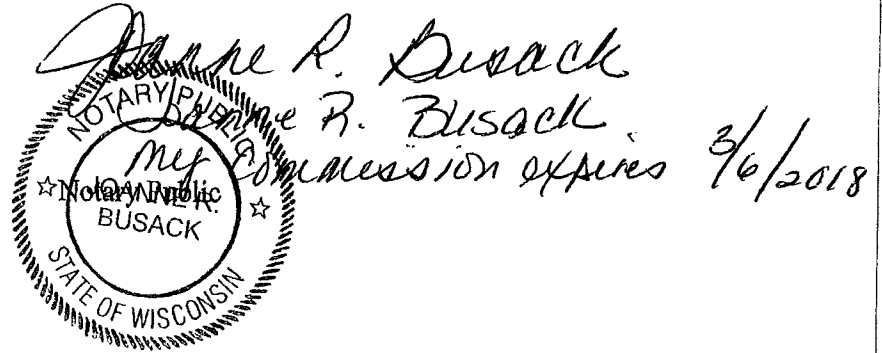 Joanne R. Busack
Joanne R. Busack
My Commission expires 3/6/2018
NOTARY PUBLIC
Notary Public
JOANNE R.
BUSACK
STATE OF WISCONSIN